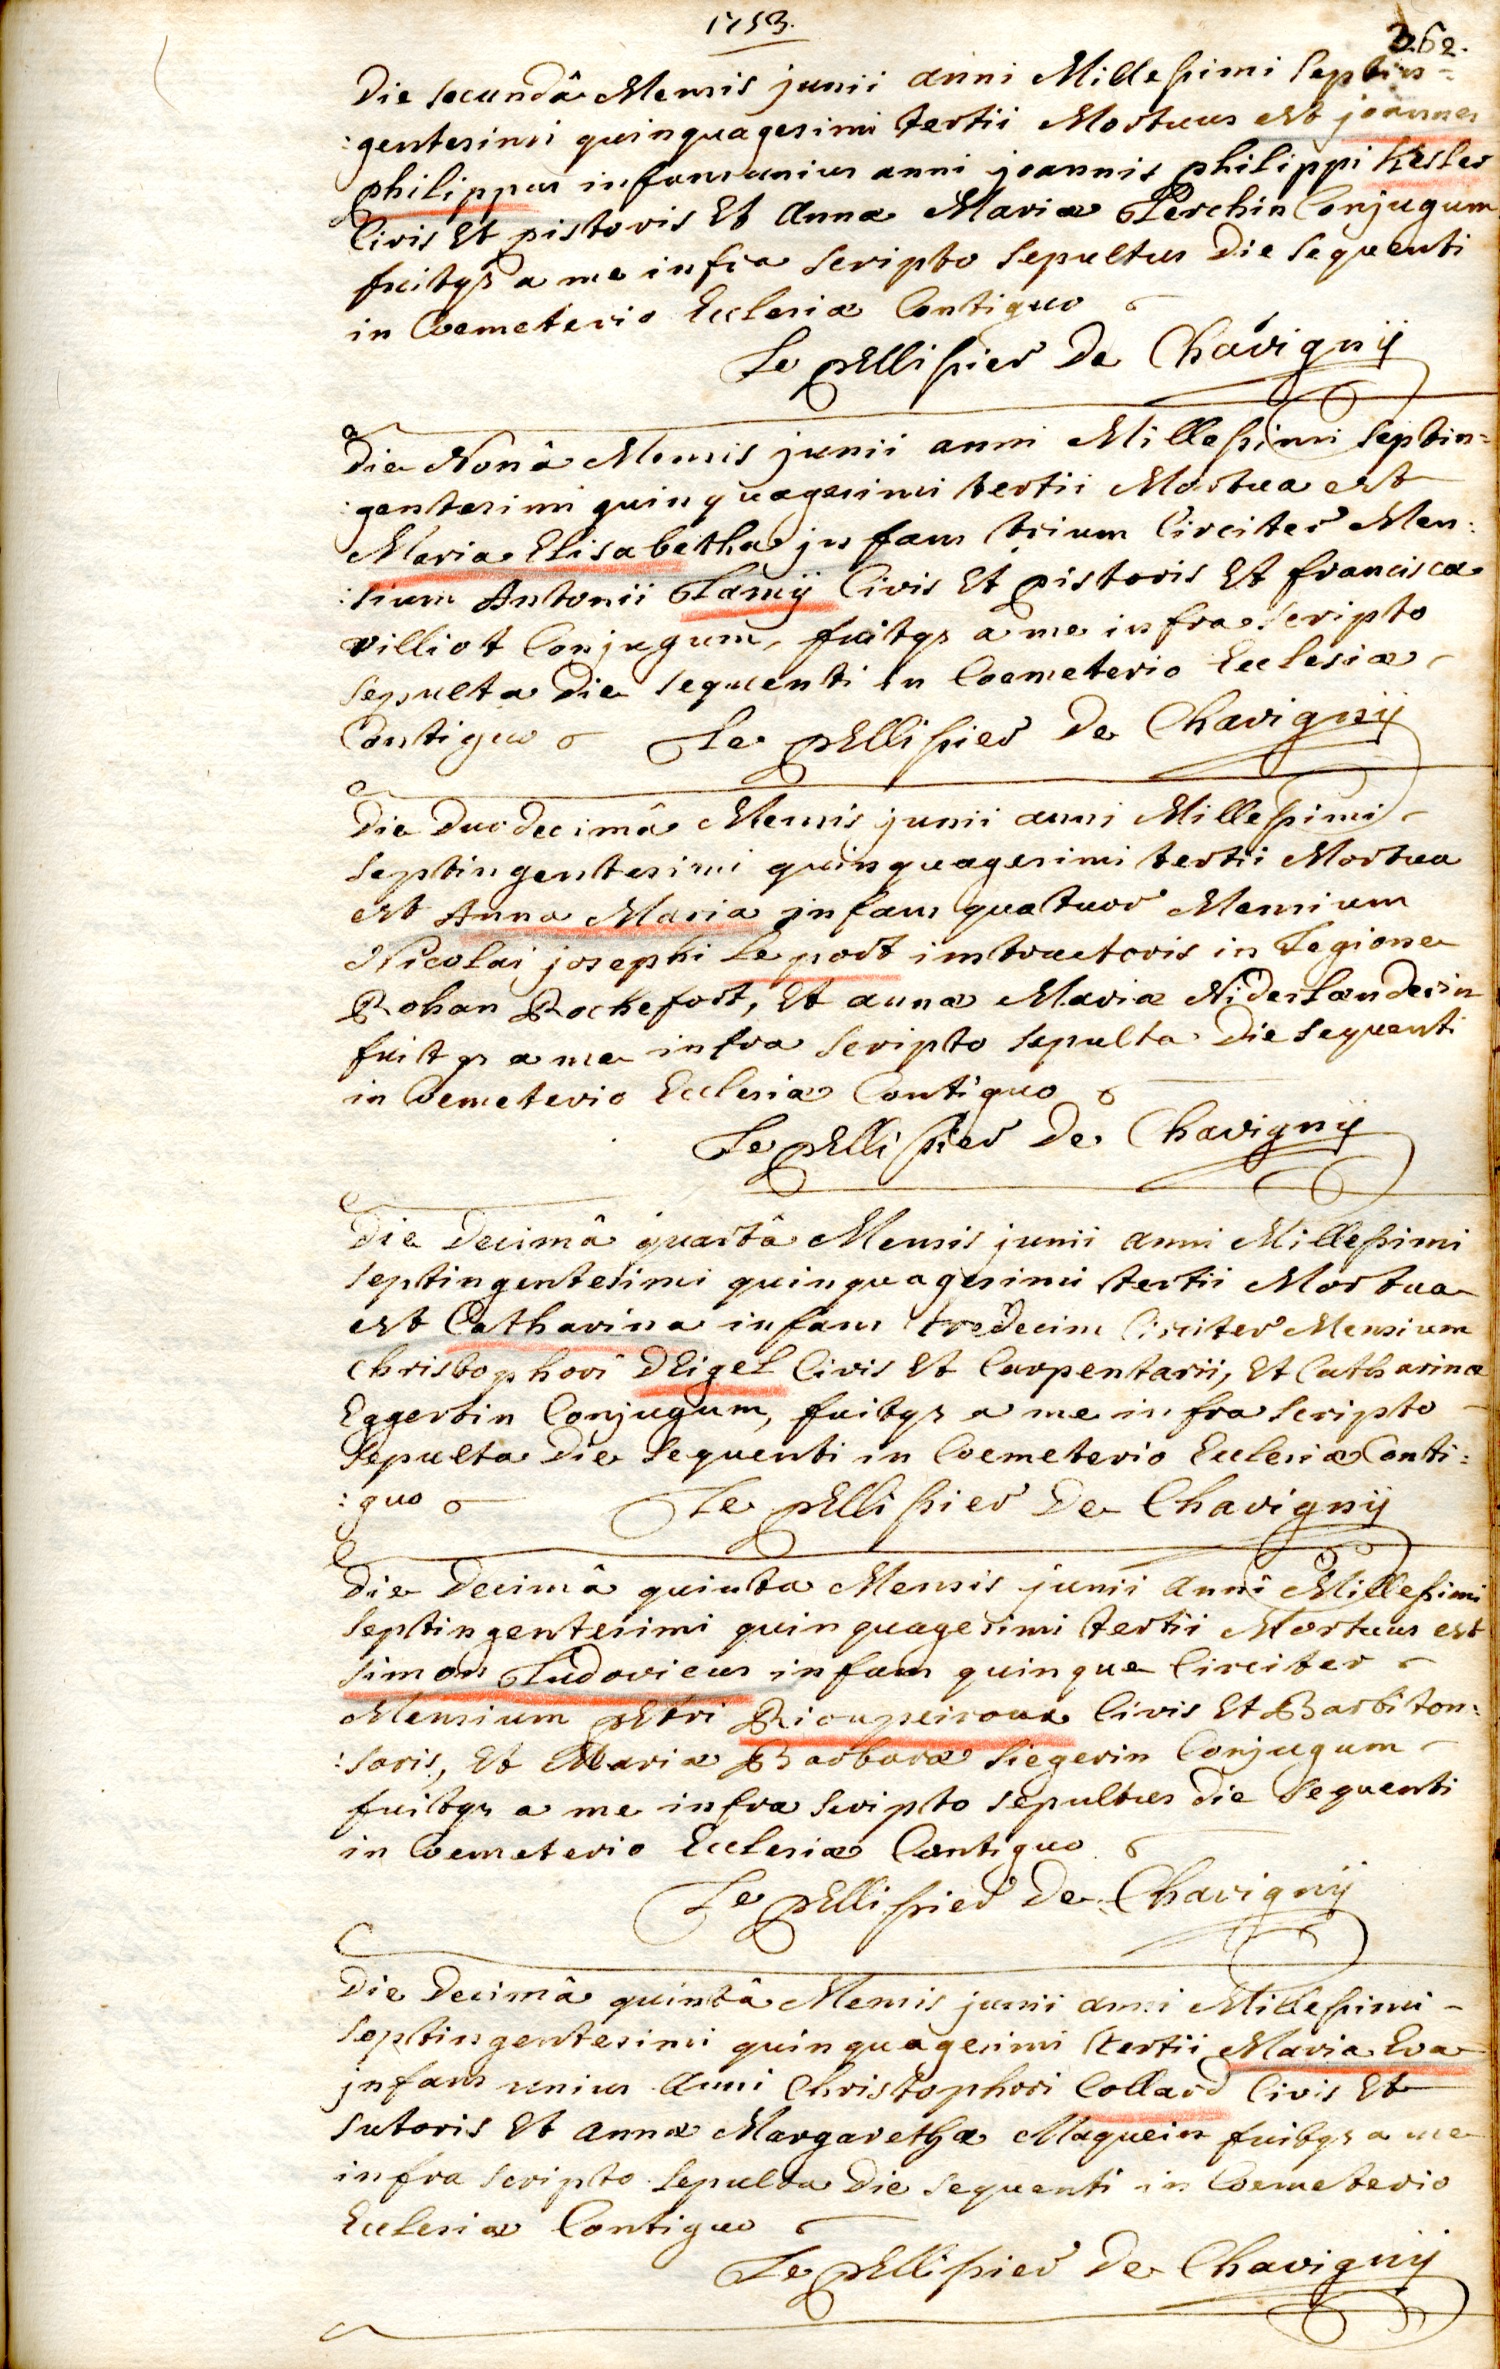 1753.
362.
Die secundâ Mensis junii anni Millesimi septin=
:gentesimi quinquagesimi tertii Mortuus est joannes
philippus infans unius anni joannis philippi Kesler
Civis Et pistoris Et Annæ Mariæ Lerchin Conjugum
fuitqz a me infra scripto sepultus die sequenti
in Coemeterio Ecclesiæ Contiguo
Le pEllissier De Chavignÿ
Die Nonâ Mensis junii anni Millesimi septin=
:gentesimi quinquagesimi tertii Mortua est
Maria Elisabetha jnfans trium Circiter Men:
:sium Antonii Lamÿ Civis Et pistoris Et franciscæ
villiot Conjugum, fuitqz a me infra scripto
sepulta die sequenti in Coemeterio Ecclesiæ
Contiguo Le pEllissier De Chavignÿ
Die Duodecimâ Mensis junii anni Millesimi
septingentesimi quinquagesimi tertii Mortua
est Anna Maria infans quatuor Mensium
Nicolai josephi Le port instructoris in Legione
Rohan Rochefort, Et annæ Mariæ Niderlænderin
fuitqz a me infra scripto sepulta die sequenti
in Coemeterio Ecclesiæ Contiguo
Le pEllissier De Chavignÿ
Die Decimâ quartâ Mensis junii anni Millesimi
septingentesimi quinquagesimi tertii Mortua
est Catharina infans tredecim Circiter Mensium
Christophori DEigel Civis Et Carpentarii, Et Catharinæ
Eggertin Conjugum, fuitqz a me infra scripto
sepulta die sequenti in Coemeterio Ecclesiæ Conti:
:guo Le pEllissier De Chavignÿ
Die Decimâ quinta Mensis junii Anni Millesimi
septingentesimi quinquagesimi tertii Mortuus est
simon Ludovicus infans quinque Circiter
Mensium pEtri Rioupeiroux Civis Et Barbiton:
:soris, Et Mariæ Barbaræ siegerin Conjugum
fuitqz a me infra scripto sepultus die sequenti
in Coemeterio Ecclesiæ Contiguo
Le pEllissier De Chavignÿ
Die Decimâ quintâ Mensis junii anni Millesimi
septingentesimi quinquagesimi tertii Maria Eva
jnfans unius anni Christophori Collard Civis Et
sutoris Et annæ Margarethæ Maquein fuitqz a me
infra scripto sepulta die sequenti in Coemeterio
Ecclesiæ Contiguo
Le pEllissier De Chavignÿ